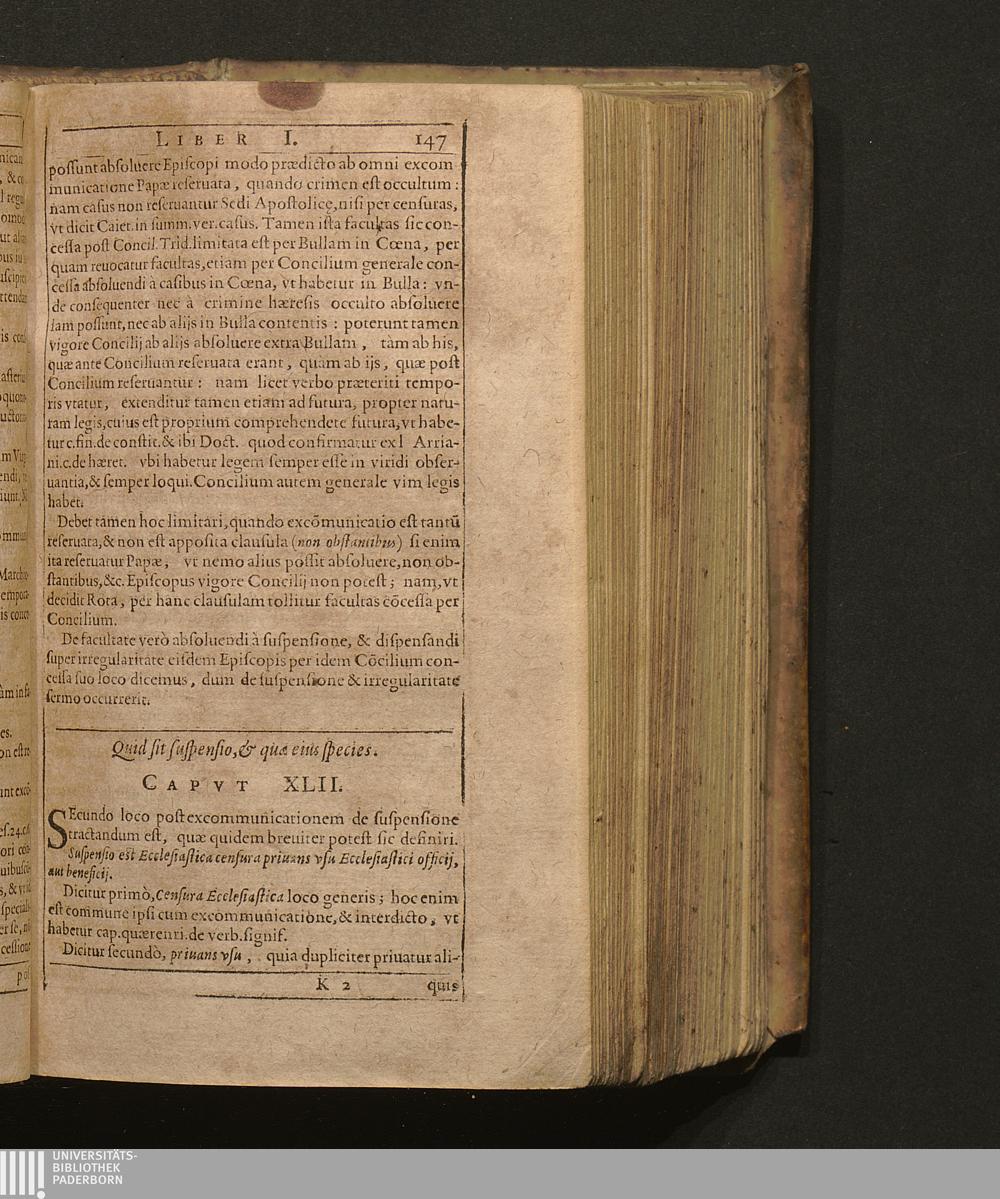 LIBER I. 147
possunt absoluere Episcopi modo prædicto ab omni excom
municatione Papæ reseruata, quando crimen est occultum:
nam casus non reseruantur Sedi Apostolicę, nisi per censuras,
vt dicit Caiet. in summ. ver. casus. Tamen ista facultas sic con-
cessa post Concil. Trid. limitata est per Bullam in Cœna, per
quam reuocatur facultas, etiam per Concilium generale con-
cessa absoluendi à casibus in Cœna, vt habetur in Bulla: vn-
de consequenter nec à crimine hæresis occulto absoluere
iam possunt, nec ab alijs in Bulla contentis: poterunt tamen
vigore Concilij ab alijs absoluere extra Bullam, tàm ab his,
quæ ante Concilium reseruata erant, quàm ab ijs, quæ post
Concilium reseruantur: nam licet verbo præteriti tempo-
ris vtatur, extenditur tamen etiam ad futura, propter natu-
ram legis, cuius est proprium comprehendere futura, vt habe-
tur c. fin. de constit. & ibi Doct. quod confirmatur ex l Arria-
ni. c. de hæret. vbi habetur legem semper esse in viridi obser-
uantia, & semper loqui. Concilium autem generale vim legis
habet.
Debet tamen hoc limitari, quando excōmunicatio est tantū
reseruata, & non est apposita clausula (non obstantibus) si enim
ita reseruatur Papæ, vt nemo alius possit absoluere, non ob-
stantibus, &c. Episcopus vigore Concilij non potest; nam, vt
decidit Rota, per hanc clausulam tollitur facultas cōcessa per
Concilium.
De facultate verò absoluendi à suspensione, & dispensandi
super irregularitate eisdem Episcopis per idem Cōcilium con-
cessa suo loco dicemus, dum de suspensione & irregularitate
sermo occurrerit.
Quid sit suspensio, & quæ eius species.
CAPVT XLII.
SEcundo loco post excommunicationem de suspensione
tractandum est, quæ quidem breuiter potest sic definiri.
Suspensio est Ecclesiastica censura priuans vsu Ecclesiastici officij,
aut beneficij.
Dicitur primò, Censura Ecclesiastica loco generis; hoc enim
est commune ipsi cum excommunicatione, & interdicto, vt
habetur cap. quærenti. de verb. signif.
Dicitur secundò, priuans vsu, quia dupliciter priuatur ali-
K 2 quis
UNIVERSITÄTS-
BIBLIOTHEK
PADERBORN